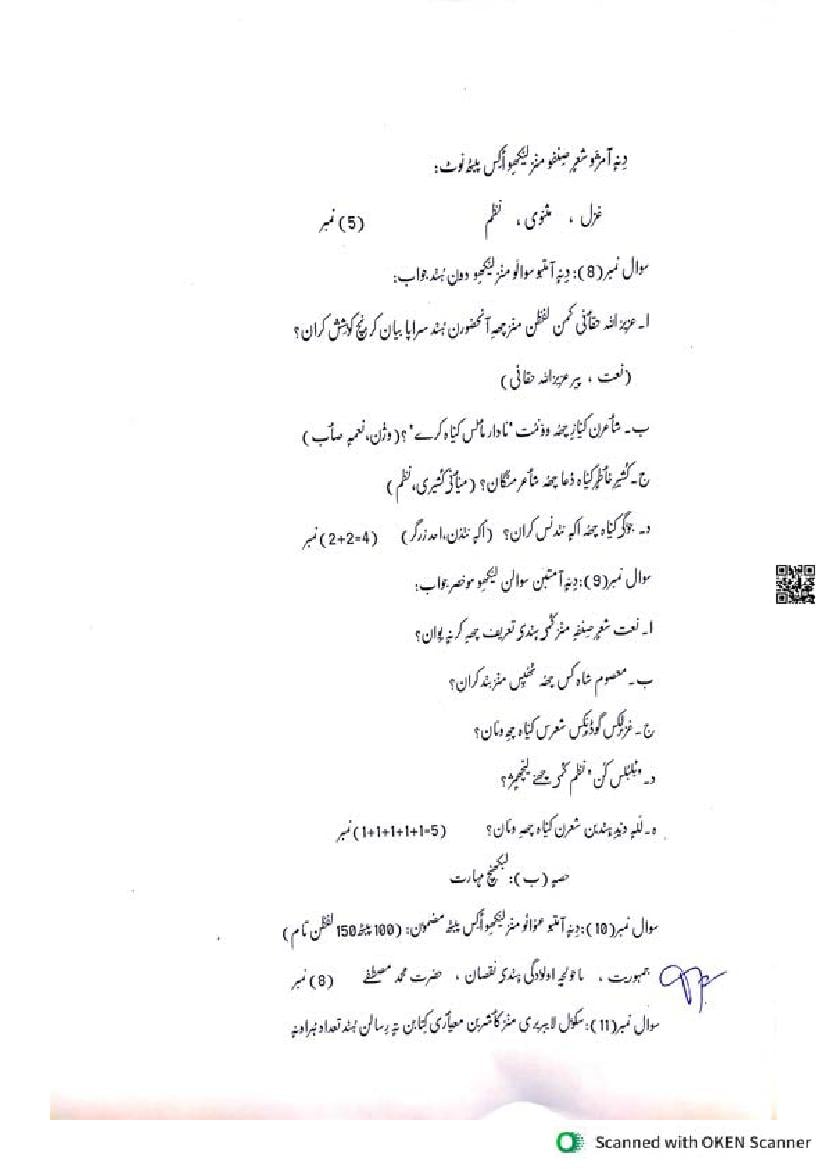 دِنہٕ آمژو شعرٕ صِنفو منزٕ لیکھو اَکس پیٹھ نوٹ:
غزل ، مثنوی ، نظم (5) نمبر
سوال نمبر(8): دِنہٕ آمتیو سوالو منزٕ لیکھو دون ہُند جواب:
ا۔ عزیز اللہ حقأنی کمن لفظن منز چھِ آنحضورن ہُند سراپا بیان کرنچ کوٗشش کران؟
(نعت ، پیر عزیز اللہ حقانی)
ب۔ شأعرن کیازِ چھُ ووٚنمت "نادار مألس کیاہ کرے"؟ (وژن، نعمہٕ صأب)
ج۔ کٔشیرِ خأطرٕ کیاہ دُعا چھُ شأعر منگان؟ (میأنی کٔشیری، نظم)
د۔ جوگی کیاہ چھُ اکہٕ نندنس کران؟ (اکہٕ نندٕن، احد زرگر) (2+2=4) نمبر
سوال نمبر(9): دِنہٕ آمتین سوالن لیکھو موخصر جواب:
ا۔ نعت شعرٕ صِنفہِ منز کٔمی ہندی تعریف چھِ کرنہٕ یوان؟
ب۔ معصوم شاہ کس چھُ ٹھٔپس منز بند کران؟
ج۔ غزلکِس گوڈنِکس شعرس کیاہ چھِ ونان؟
د۔ "بُلبُلس کُن" نظم کٔمی چھےٚ لیچھمٕژ؟
ہ۔ للہٕ دیدِ ہندین شعرن کیاہ چھِ ونان؟ (1+1+1+1+1=5) نمبر
حصہٕ (ب): لیکھنٕچ مہارت
سوال نمبر(10): دِنہٕ آمتیو عنوانو منزٕ لیکھو اَکس پیٹھ مضمون: (100 پیٹھٕ 150 لفظن تام)
جمہوریت ، ماحولچہِ اولودگی ہندی نقصان ، حضرت محمد مصطفےٰ (8) نمبر
سوال نمبر(11): سکوٗل لایبریری منز کأشرین معیأری کِتابن تہٕ رِسالن ہُند تعداد ہُراونہٕ
Scanned with OKEN Scanner